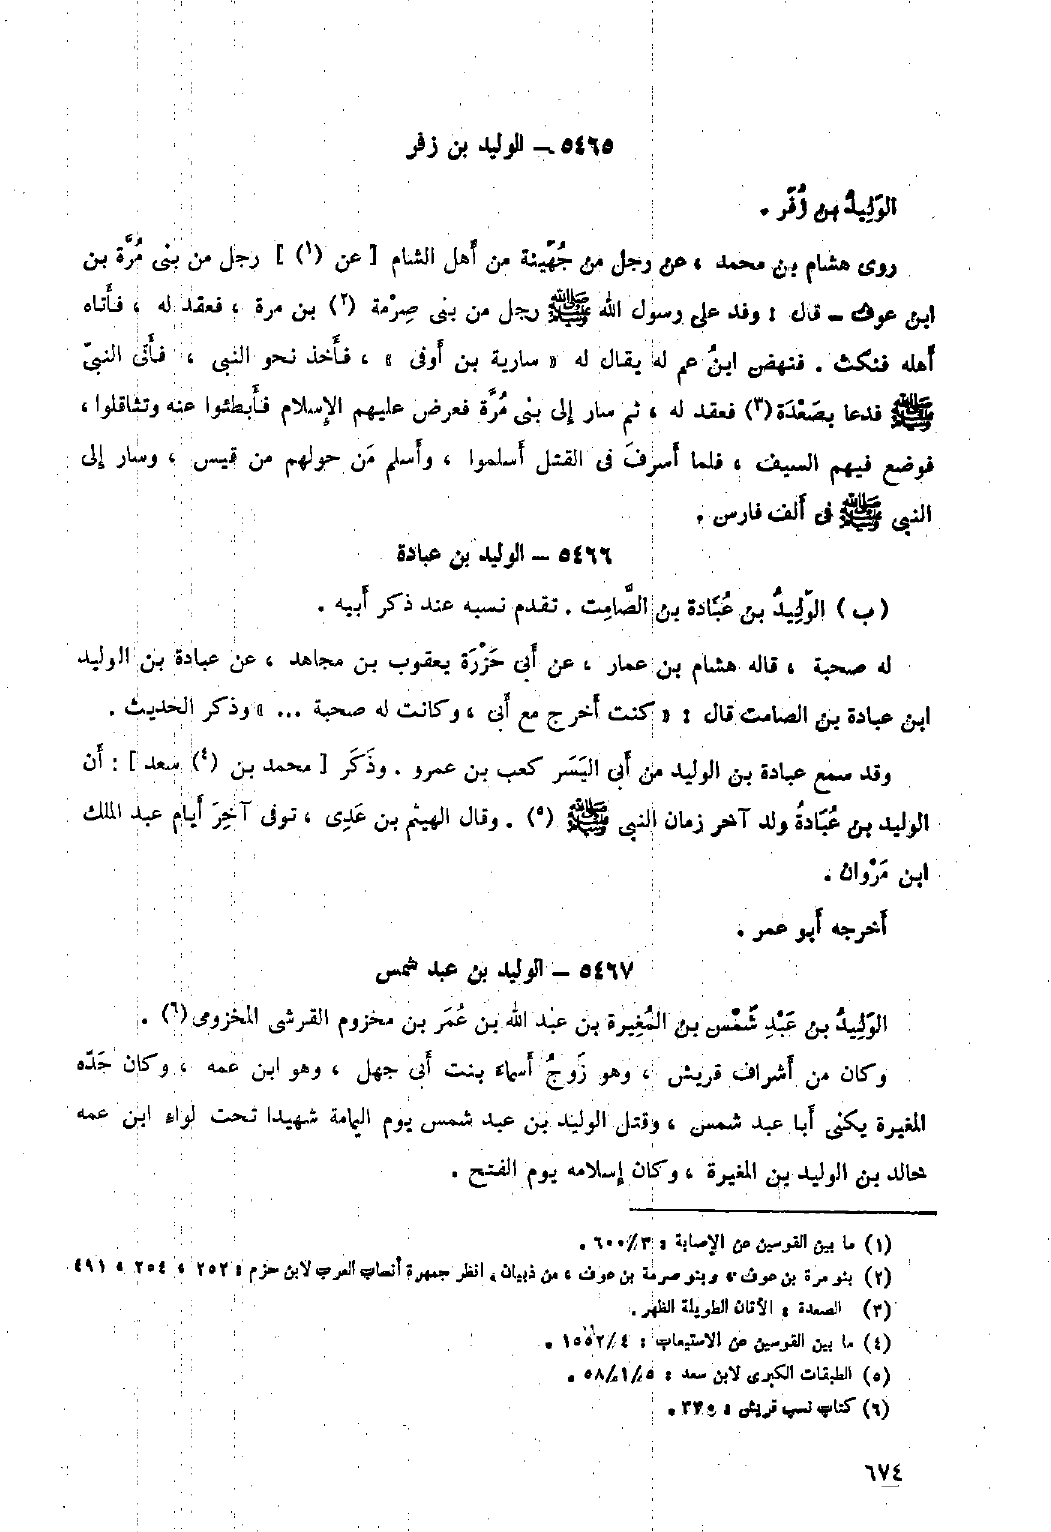 ٥٤٦٥ – الوليد بن زفر
الوَلِيدُ بن زُفَر .
روى هشام بن محمد ، عن رجل من جُهَيْنة من أهل الشام [ عن (١) ] رجل من بنى مُرَّة بن
ابن عوف – قال : وفد على رسول الله ﷺ رجل من بنى صِرْمة (٢) بن مرة ، فعقد له ، فأتاه
أهله فنكث . فنهض ابنُ عم له يقال له « سارية بن أوفى » ، فأخذ نحو النبى ، فأتى النبىّ
ﷺ فدعا بصَعْدَة (٣) فعقد له ، ثم سار إلى بنى مُرَّة فعرض عليهم الإسلام فأبطئوا عنه وتثاقلوا ،
فوضع فيهم السيف ، فلما أسرفَ فى القتل أسلموا ، وأسلم مَن حولهم من قيس ، وسار إلى
النبى ﷺ فى ألف فارس .
٥٤٦٦ – الوليد بن عبادة
( ب ) الوَلِيدُ بن عُبَادة بن الصَّامِت . تقدم نسبه عند ذكر أبيه .
له صحبة ، قاله هشام بن عمار ، عن أبى حَزْرَة يعقوب بن مجاهد ، عن عبادة بن الوليد
ابن عبادة بن الصامت قال : « كنت أخرج مع أبى ، وكانت له صحبة ... » وذكر الحديث .
وقد سمع عبادة بن الوليد من أبى اليَسَر كعب بن عمرو . وذَكَر [ محمد بن (٤) سعد ] : أن
الوليد بن عُبَادةُ ولد آخر زمان النبى ﷺ (٥) . وقال الهيثم بن عَدِى ، توفى آخِرَ أيام عبد الملك
ابن مَرْوان .
أخرجه أبو عمر .
٥٤٦٧ – الوليد بن عبد شمس
الوَلِيدُ بن عَبْدِ شَمْس بن المُغِيرة بن عبد الله بن عُمَر بن مخزوم القرشى المخزومى(٦) .
وكان من أشراف قريش ، وهو زَوجُ أسماء بنت أبى جهل ، وهو ابن عمه ، وكان جَدّه
المغيرة يكنى أبا عبد شمس ، وقتل الوليد بن عبد شمس يوم اليمامة شهيدا تحت لواء ابن عمه
خالد بن الوليد بن المغيرة ، وكان إسلامه يوم الفتح .
(١) ما بين القوسين عن الإصابة : ٦٠٠/٣ .
(٢) بنو مرة بن عوف ، وبنو صرمة بن عوف ، من ذبيان . انظر جمهرة أنساب العرب لابن حزم : ٢٥٢ ، ٢٥٤ ، ٤٩١
(٣) الصعدة : الأتان الطويلة الظهر .
(٤) ما بين القوسين عن الاستيعاب : ١٥٥٢/٤ .
(٥) الطبقات الكبرى لابن سعد : ٥٨/١/٥ .
(٦) كتاب نسب قريش :
٦٧٤